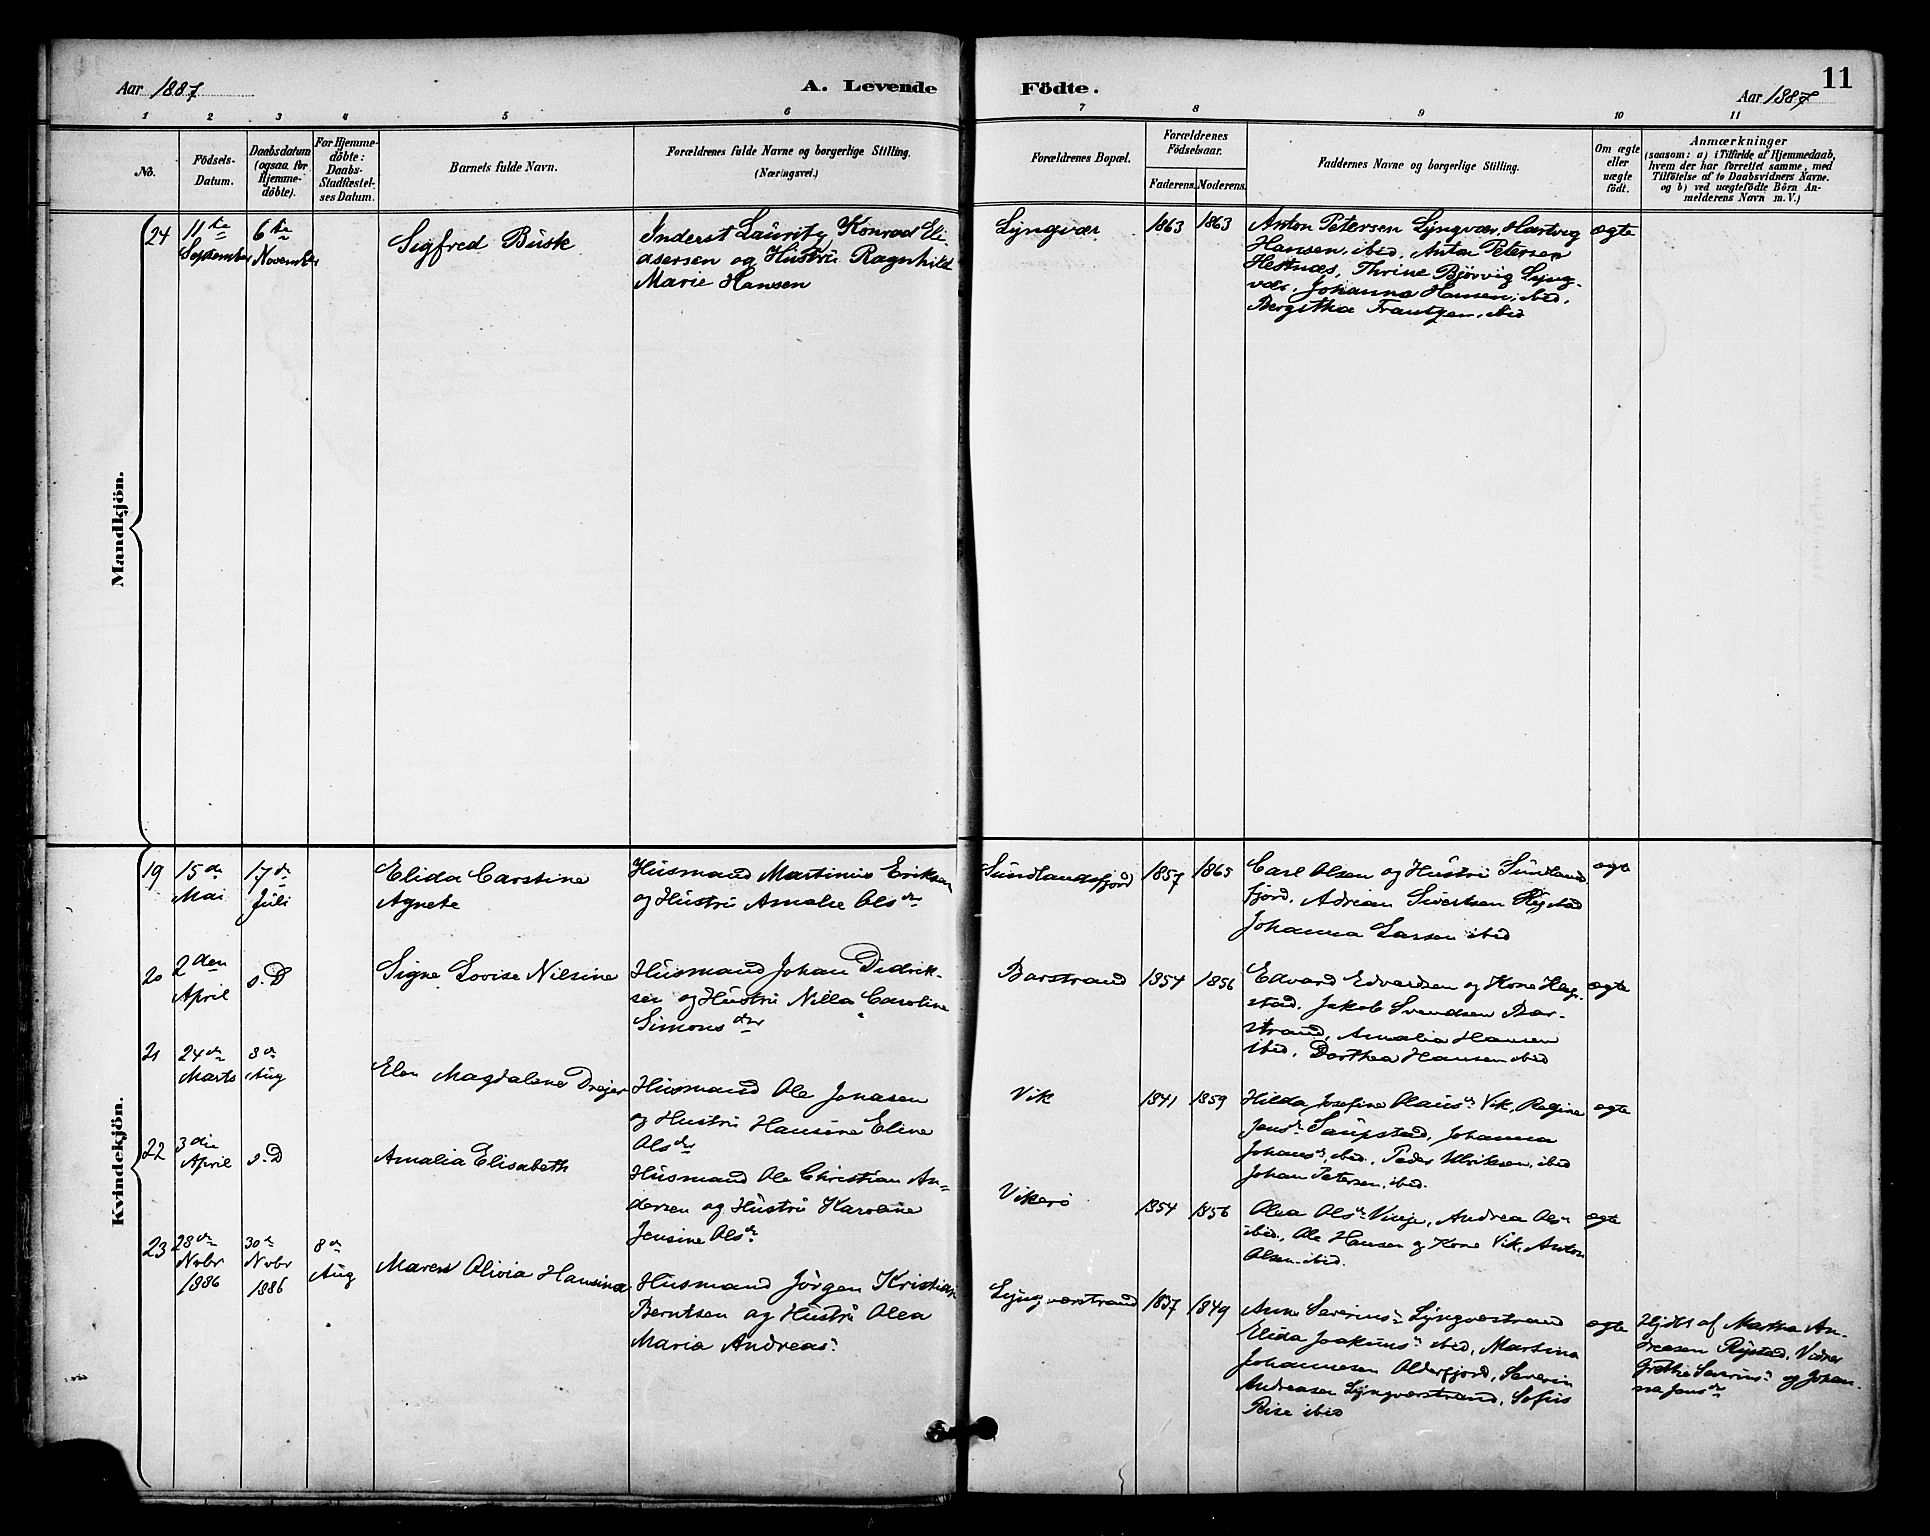 Aar 1887
A. Levende
Födte.
11
Aar 1887
1
2
3
4
5
6
7
8
9
10
11
No.
Födsels-
Datum.
Daabsdatum
(ogsaa for
Hjemme-
döbte).
For Hjemme-
döbte:
Daabs-
Stadfæstel-
ses Datum.
Barnets fulde Navn.
Forældrenes fulde Navne og borgerlige Stilling.
(Næringsvei.)
Forældrenes Bopæl.
Forældrenes
Födselsaar.
Faderens.
Moderens.
Faddernes Navne og borgerlige Stilling.
Om ægte
eller
uægte
födt.
Anmærkninger
(saasom: a) i Tilfælde af Hjemmedaab,
hvem der har forrettet samme, med
Tilföielse af to Daabsvidners Navne.
og b) ved uægtefödte Börn An-
melderens Navn m. V.)
Mandkjön.
24
11te
September
6te
November
Sigfred Busk
Inderst Lauritz Konrad Eli-
asersen og Hustru Ragnhild
Marie Hansen
Lyngvær
1863
1863
Anton Petersen Lyngvær, Hartvig
Hansen, ibid, Anton Petersen
Hestnæs, Thrine Bjørvig Lyng-
vær, Johanna Hansen, ibid,
Bergitha Frantzen, ibid
ægte
Kvindekjön.
19
15de
Mai
17de
Juli
Elida Carstine
Agnete
Husmand Martinus Eriksen
og Hustru Amalie Olsdr
Sundlandsfjord
1857
1865
Carl Olsen og Hustru Sundlands
fjord, Adrian Sivertsen
Johanna Larsen ibid
ægte
20
2den
April
s. D
Signe Lovise Nilsine
Husmand Johan Didrik-
sen og Hustru Nilla Caroline
Simonsdtr
Barstrand
1854
1856
Edvard Edvardsen og Kone Hag-
stad, Jakob Svendsen Bar-
strand, Amalia Hansen
ibid, Dorthea Hansen ibid
ægte
21
24de
Marts
8de
Aug
Elen Magdalene Drejer
Husmand Ole Jonasen
og Hustru Hansine Eline
Olsdr
Vik
1841
1859
Hilda Josefine Olausdr Vik, Regine
Jensdr Saupstad, Johanna
Johansdr, ibid, Peder Ulriksen, ibid
Johan Petersen, ibid.
ægte
22
3die
April
s. D
Amalia Elisabeth
Husmand Ole Christian An-
dersen og Hustru Karoline
Jensine Olsdr
Vikerö
1854
1856
Olea Olsdr Vinje, Andrea Olsdr
ibid, Ole Hansen og Kone Vik, Anton
Olsen ibid.
ægte
23
28de
Nvbr
1886
30te
Nvbr
1886
8de
Aug
Maren Olivia Hansina
Husmand Jörgen Kristian
Berntsen og Hustru Olea
Maria Andreas.
Lyngværstrand
1837
1849
Anne Severinsdr Lyngværstrand
Elida Joakims ibid, Martina
Johannesen Olderfjord, Severin
Andreasen Lyngværstrand, Sofus
Rise ibid
ægte
Hjdbt af Martha An-
dreasen Rystad, Vidner
Grethe Severins og Johan-
na Jensdr